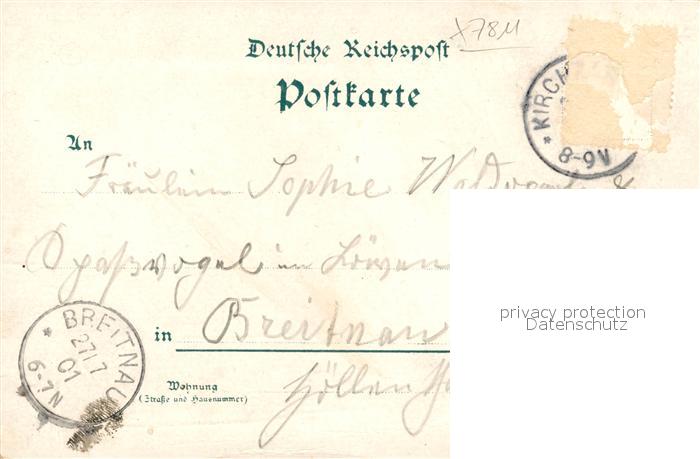 X78M
Deutsche Reichspost
Postkarte
An
Fräulein Sophie
Spaßvogel im Löwen
in Breitnau
Wohnung
(Straße und Hausnummer)
Höllen
* KIRCH
8-9V
* BREITNAU
27.7
01
6-7N
privacy protection
Datenschutz